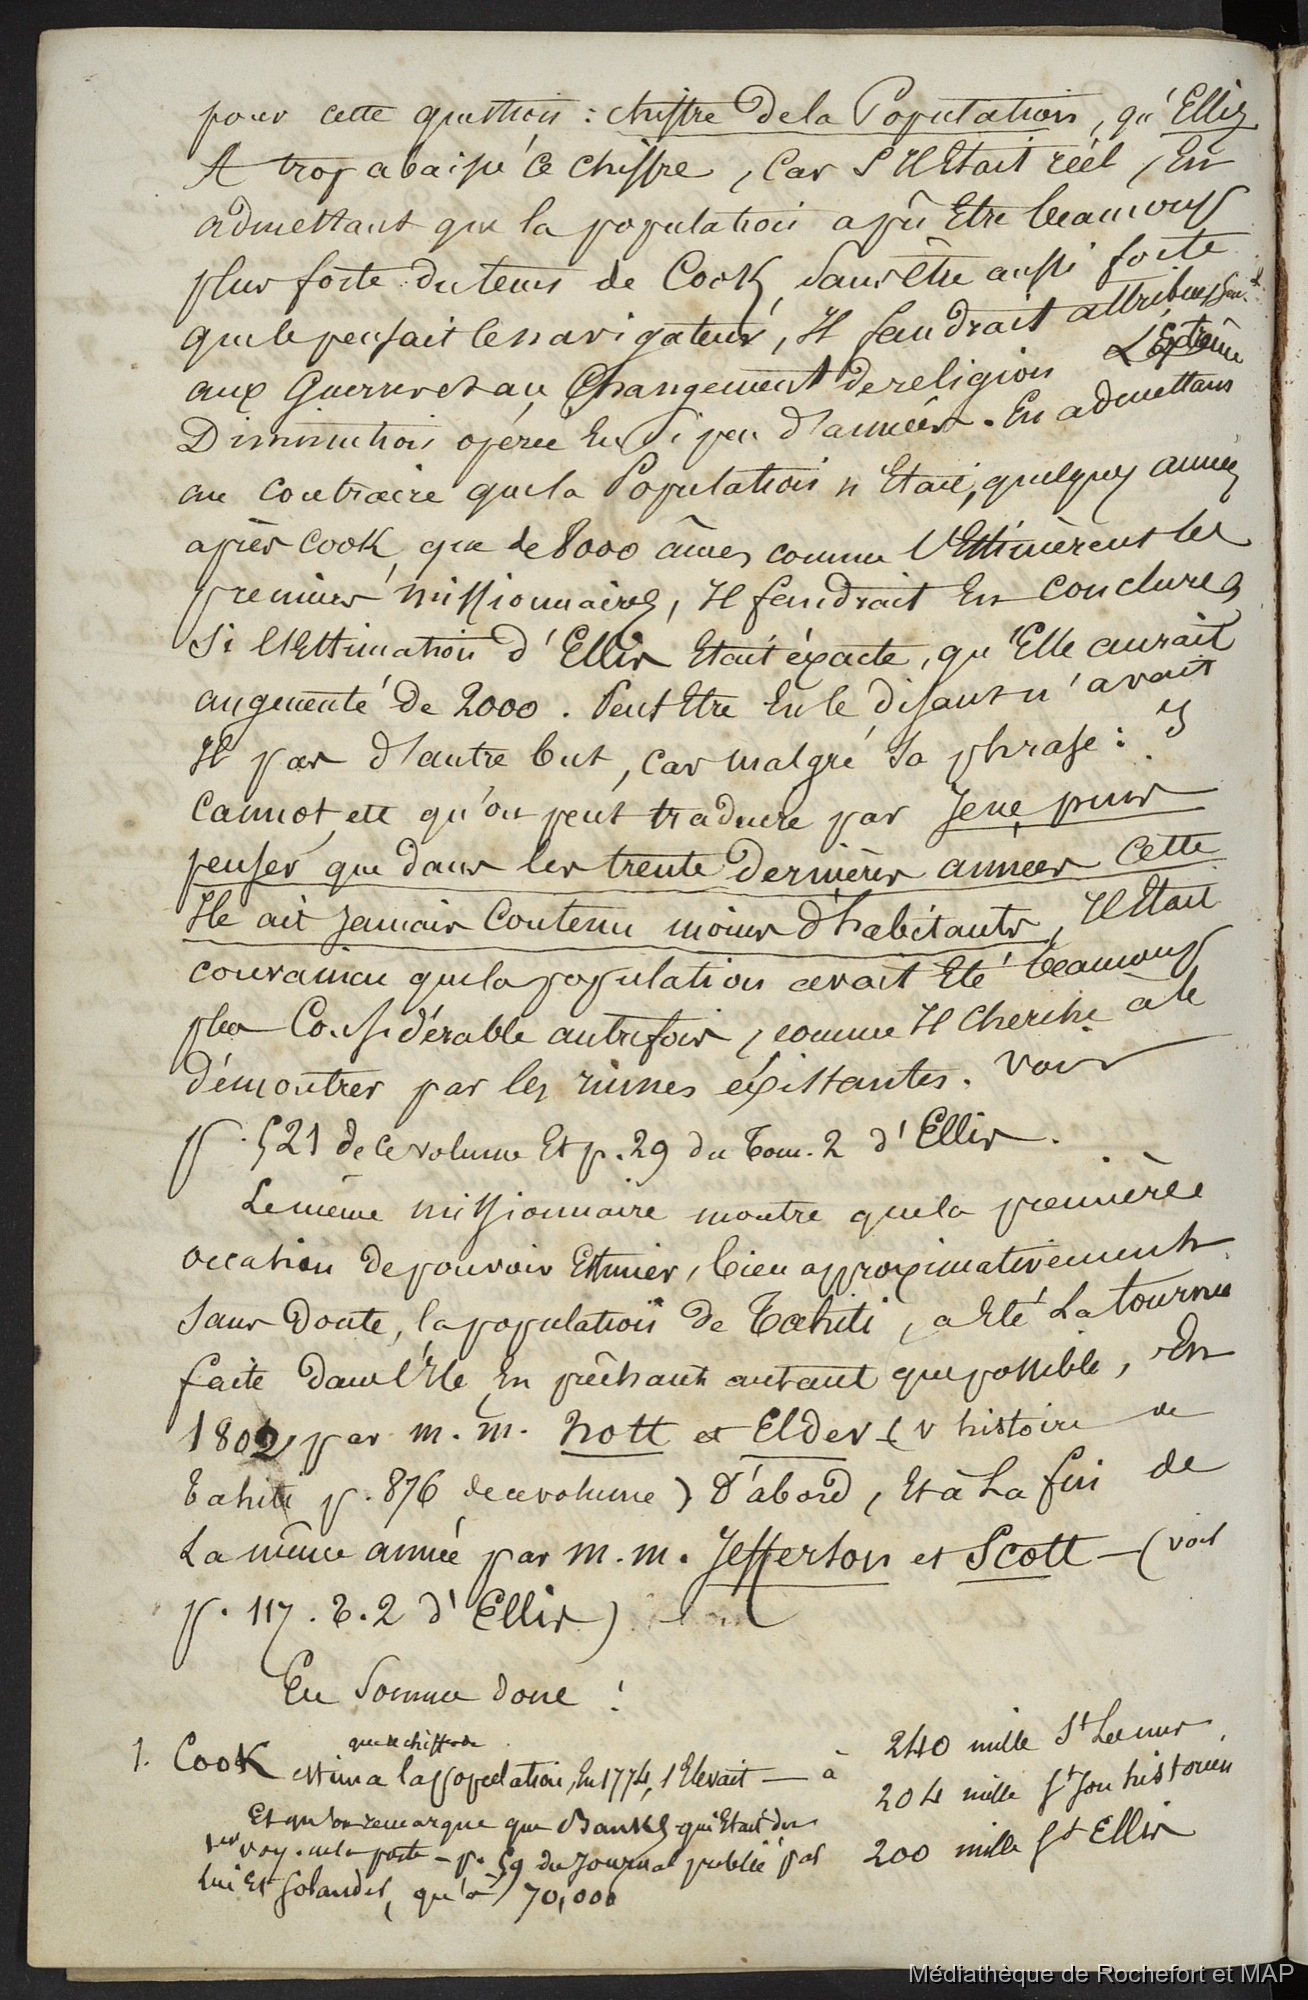 pour cette question : chiffre de la Population, qu'Ellis
A trop abaissé ce chiffre, Car S'Il Etait réél, En
admettant que la population a pû Etre beaucoup
plus forte du tems de Cook, sans être aussi forte
que le pensait le navigateur, Il faudrait attribuer
aux Guerres et au Changement de religion L'Extrême
Diminution opérée En Si peu d'années. En admettant
au contraire que la Population n'Etait, quelques années
après Cook, que de 8000 âmes comme l'Estimèrent les
premiers missionnaires, Il faudrait En conclure,
Si l'Estimation d'Ellis Etait éxacte, qu'Elle aurait
augmenté de 2000. Peut Etre En le disant n'avait
Il pas d'autre but, car malgré sa phrase : J
cannot, ett qu'on peut traduire par Je ne puis
penser que dans les trente dernières années cette
Ile ait jamais Contenu moins d'habitants, Il Etait
convaincu que la population avait Eté beaucoup
plus Considérable autrefois, comme Il Cherche à le
démontrer par les ruines éxistantes. Voir
p. 521 de ce volume Et p. 29 du Tom. 2 d'Ellis.
Le même missionnaire montre que la première
occasion de pouvoir Estimer, bien approximativement
sans Doute, la population de Tahiti, a Eté La tournée
faite dans l'Ile En prêchant autant que possible, En
1802, par m. m. Nott et Elder (v histoire de
Tahiti p. 876 de ce volume) D'abord, Et à La fin de
La même année par m. m. Jefferson et Scott - (voir
p. 117. T. 2 d'Ellis)
En Somme donc :
1. Cook estima la population, En 1774, s'Elevait — à 240 mille St Lui meme
que le chiffre de
204 mille St Son historien
Et qu'on remarque que Banks qui Etait du
1er voy. ne la porte - p. 59 du Journal publié par
200 mille St Ellis
Lui Et Solander, qu'à 70,000
Médiathèque de Rochefort et MAP